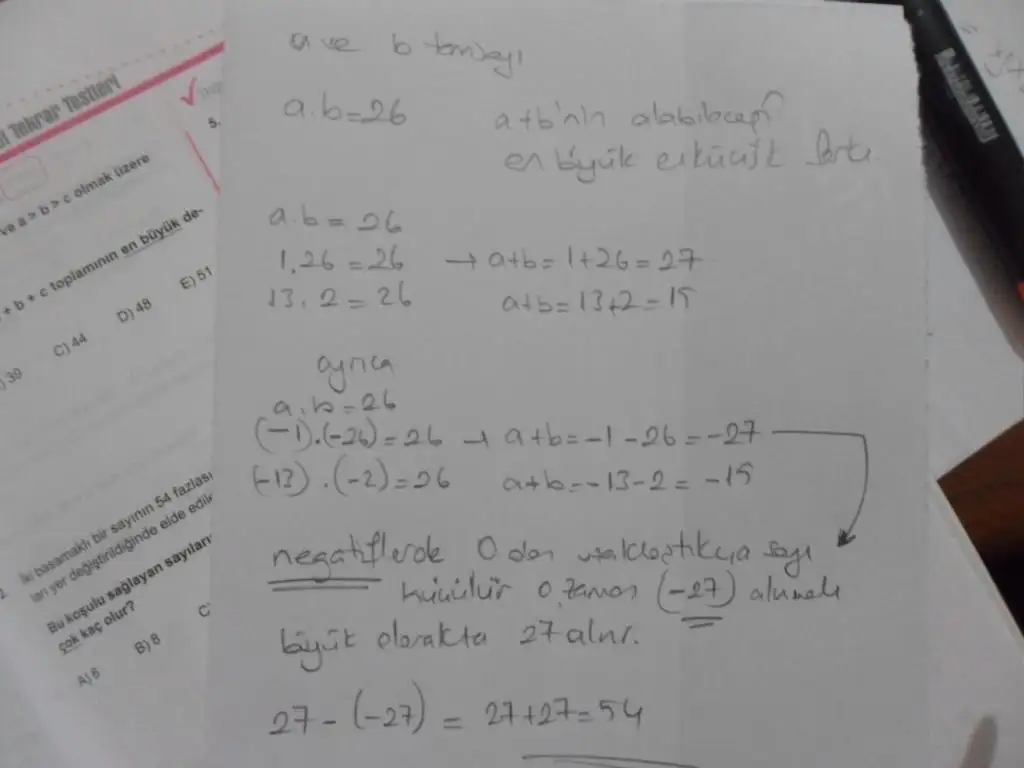 Tekrar Testleri
ve a > b > c olmak üzere
+ b + c toplamının en büyük de-
39 C) 44 D) 48 E) 51
5.
2.
İki basamaklı bir sayının 54 fazlası
ları yer değiştirildiğinde elde edile
Bu koşulu sağlayan sayıları
çok kaç olur?
A) 6 B) 8 C
a ve b tamsayı
a.b=26 a+b'nin alabileceği
en büyük en küçük farkı
a.b = 26
1.26 = 26 → a+b= 1+26 = 27
13.2 = 26 a+b= 13+2 = 15
ayrıca
a.b = 26
(-1).(-26) = 26 → a+b= -1 -26 = -27
(-13).(-2) = 26 a+b= -13-2 = -15
negatiflerde 0 dan uzaklaştıkça sayı
küçülür o zaman (-27) alınmalı
büyük olarakta 27 alınır.
27 - (-27) = 27+27 = 54